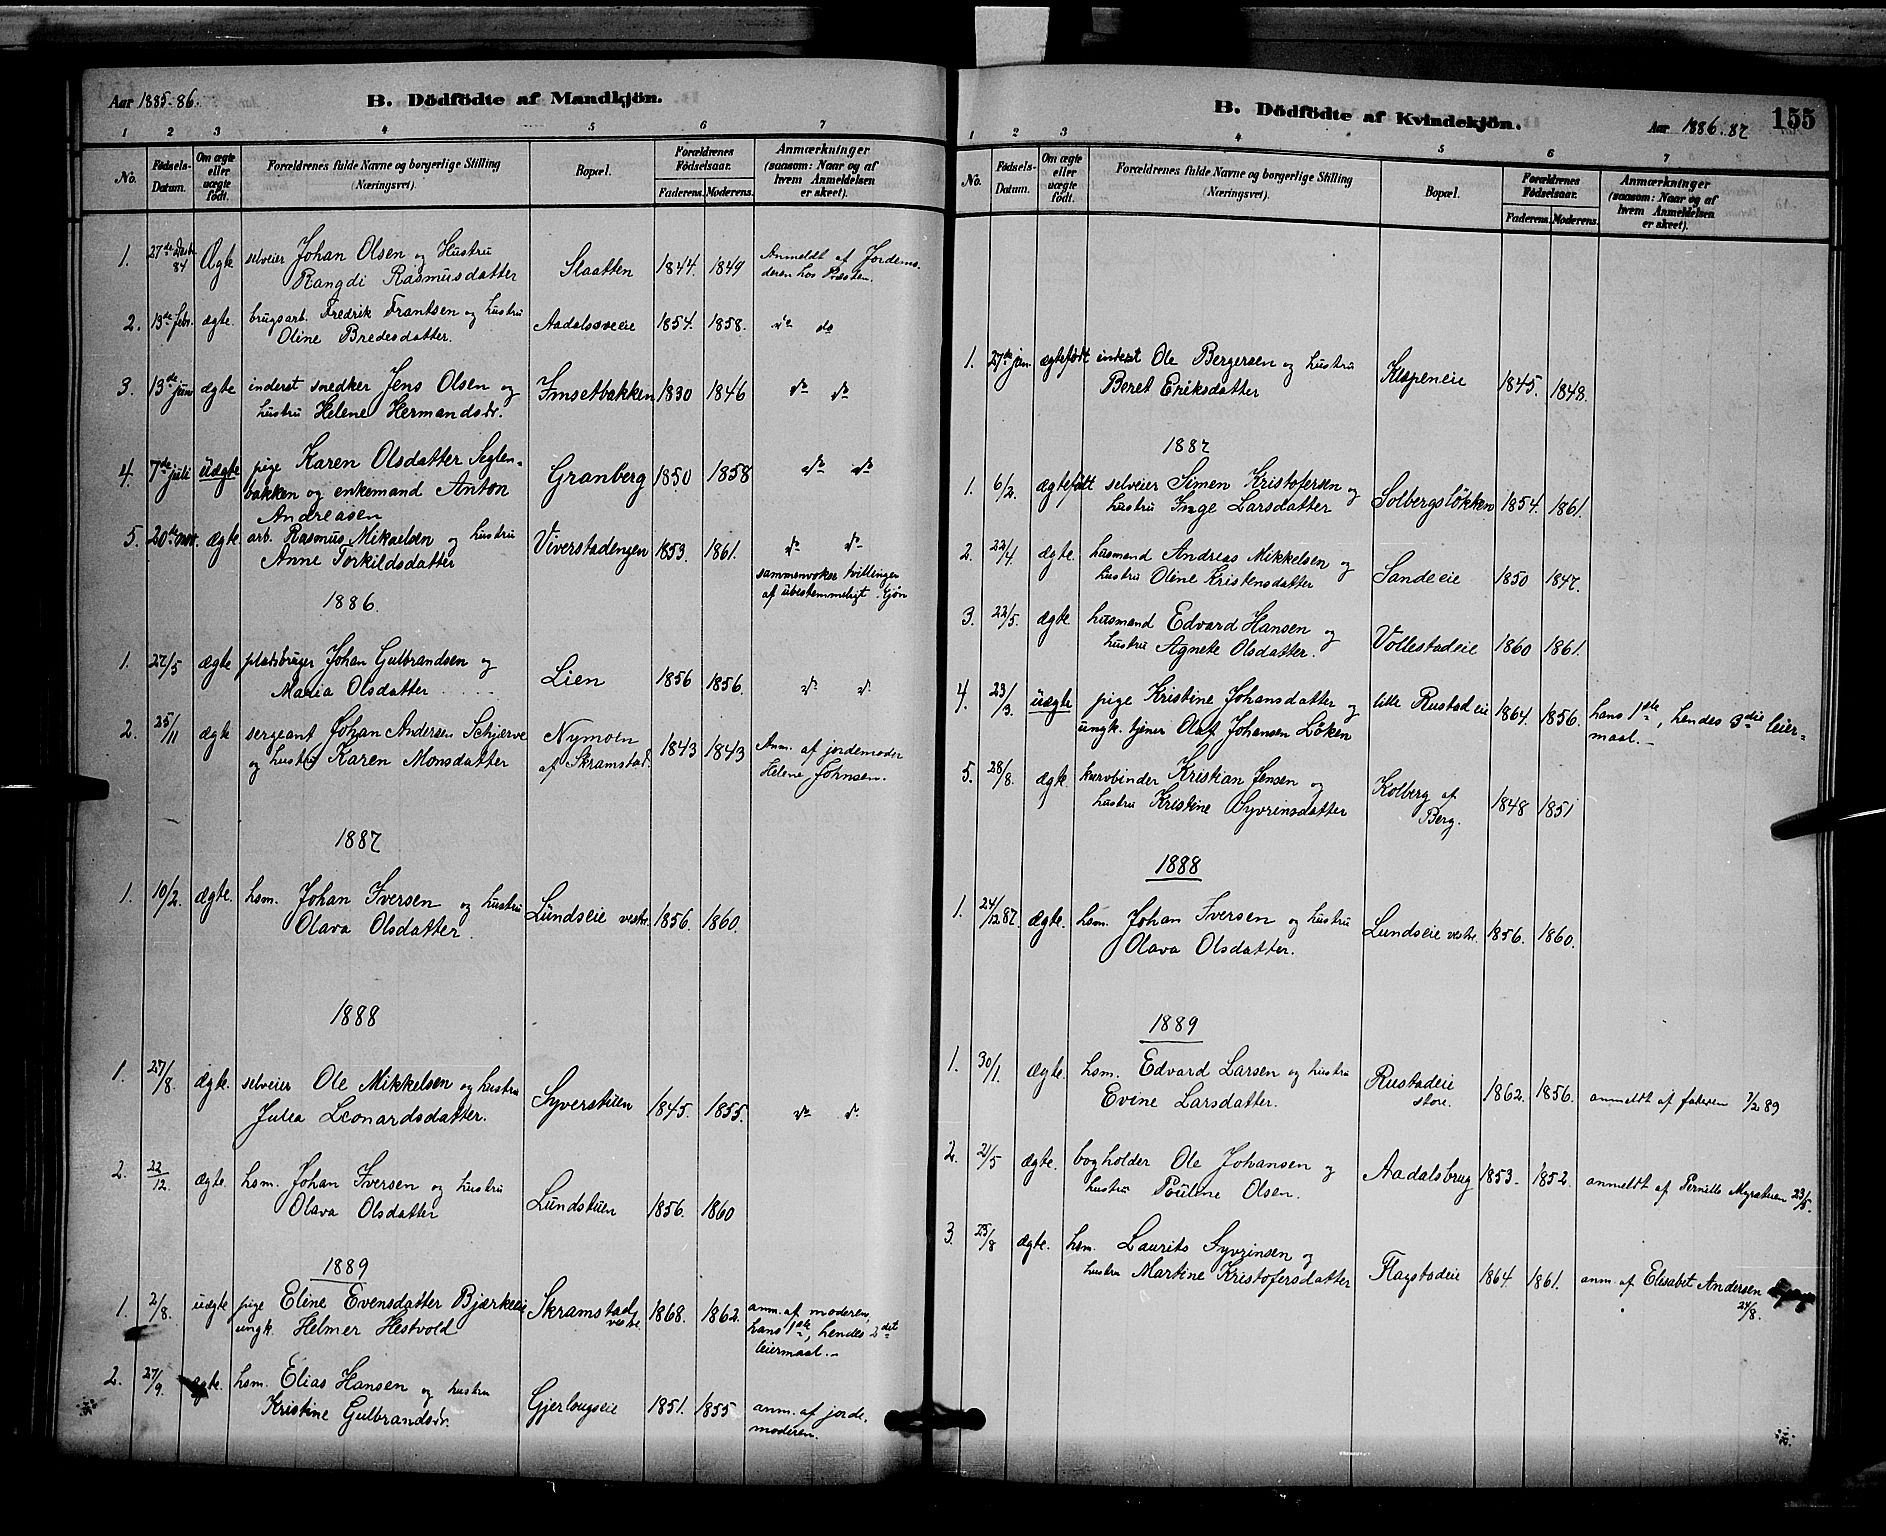 Aar 1885-86.
B. Dödfödte af Mandkjön.
1 2 3 4 5 6 7
No.
Födsels-Datum.
Om ægte eller uægte födt.
Forældrenes fulde Navne og borgerlige Stilling (Næringsvei).
Bopæl.
Forældrenes Födselsaar.
Faderens. Moderens.
Anmærkninger (saasom: Naar og af hvem Anmeldelsen er skeet).
1. 27de Decbr 84 Ægte selveier Johan Olsen og Hustru Slaatten 1844. 1849 Anmeldt af Jordemo-
Rangdi Rasmusdatter deren hos Præsten.
2. 19de febr. ægte. brugsarb. Fredrik Frantsen og hustru Aadalsveie 1854. 1858. do do
Oline Bredesdatter.
3. 13de juni ægte inderst snedker Jens Olsen og Imsetbakken 1830 1846 do do
hustru Helene Hermandsdr.
4. 7de juli uægte pige Karen Olsdatter Seglen- Granberg 1850 1858 do do
bakken og enkemand Anton
Andreasen
5. 20de nov. ægte. arb. Rasmus Mikaelsen og hustru Viverstadengen 1853. 1861. do do
Anne Torkildsdatter sammenvokse tvillinger
af ubestemmeligt Kjøn
1886.
1. 27/5 ægte pladsbruger Johan Gulbrandsen og Lien 1856 1856. do do
Maria Olsdatter
2. 25/11 ægte sergeant Johan Andersen Schjærve Nymoen 1843 1843 Anm. af jordemoder
og hustru Karen Monsdatter af Skramstad. Helene Johnsen.
1887
1. 10/2. ægte. hsm. Johan Iversen og hustru Lundseie vestre. 1856. 1860.
Olava Olsdatter.
1888
1. 27/8. ægte. selveier Ole Mikkelsen og hustru Syverstuen 1845. 1855. do do
Julia Leonardsdatter.
2. 22/12. ægte. hsm. Johan Iversen og hustru Lundstuen 1856. 1860
Olava Olsdatter
1889
1. 2/8. uægte pige Eline Evensdatter Bjærkeeie Skramstad vestre. 1868. 1862. anm. af moderen,
ungk. Helmer Hestvold hans 1ste, hendes 2det
leiermaal.-
2. 27/9. ægte. hsm. Elias Hansen og hustru Gjerlougseie 1851. 1855 anm. af jorde-
Kristine Gulbrandsdr. moderen.
B. Dödfödte af Kvindekjön.
Aar 1886.87
155
1 2 3 4 5 6 7
No.
Födsels-Datum.
Om ægte eller uægte födt.
Forældrenes fulde Navne og borgerlige Stilling (Næringsvei).
Bopæl.
Forældrenes Födselsaar.
Faderens. Moderens.
Anmærkninger (saasom: Naar og af hvem Anmeldelsen er skeet).
1. 27de jan ægtefödt inderst Ole Bergersen og hustru Kuspeneie 1845. 1848.
Beret Eriksdatter
1887
1. 6/2. ægtefödt selveier Simen Kristofersen og Solbergslökken 1854. 1861.
hustru Inge Larsdatter
2. 22/4. ægte. husmand Andreas Mikkelsen og Sandeeie 1850 1847.
hustru Oline Kristensdatter
3. 22/5. ægte. husmand Edvard Hansen og Vollestadeie 1860 1861.
hustru Agnete Olsdatter.
4. 23/3. uægte pige Kristine Johansdatter og lille Rustadeie 1864. 1856. hans 1ste, hendes 3die leier-
ungk. tjener Olaf Johansen Löken maal.-
5. 28/8. ægte. kurvbinder Kristian Jensen og Kolberg af 1848 1851
hustru Kristine Syvrinsdatter Berg.
1888
1. 24/12 87. ægte. hsm. Johan Iversen og hustru Lundseie vestre. 1856. 1860.
Olava Olsdatter.
1889
1. 30/1. ægte. hsm. Edvard Larsen og hustru Rustadeie 1862. 1856. anmeldt af faderen 7/2 89
Evine Larsdatter. store.
2. 21/5 ægte. bogholder Ole Johansen og Aadalsbrug 1853. 1852. anmeldt af Pernille Myrstuen 23/5.
hustru Pouline Olsen.
3. 23/8 ægte. hsm. Laurits Syvrinsen og Flagstadeie 1864. 1861. anm. af Elisabet Andersen
hustru Martine Kristofersdatter 24/8.